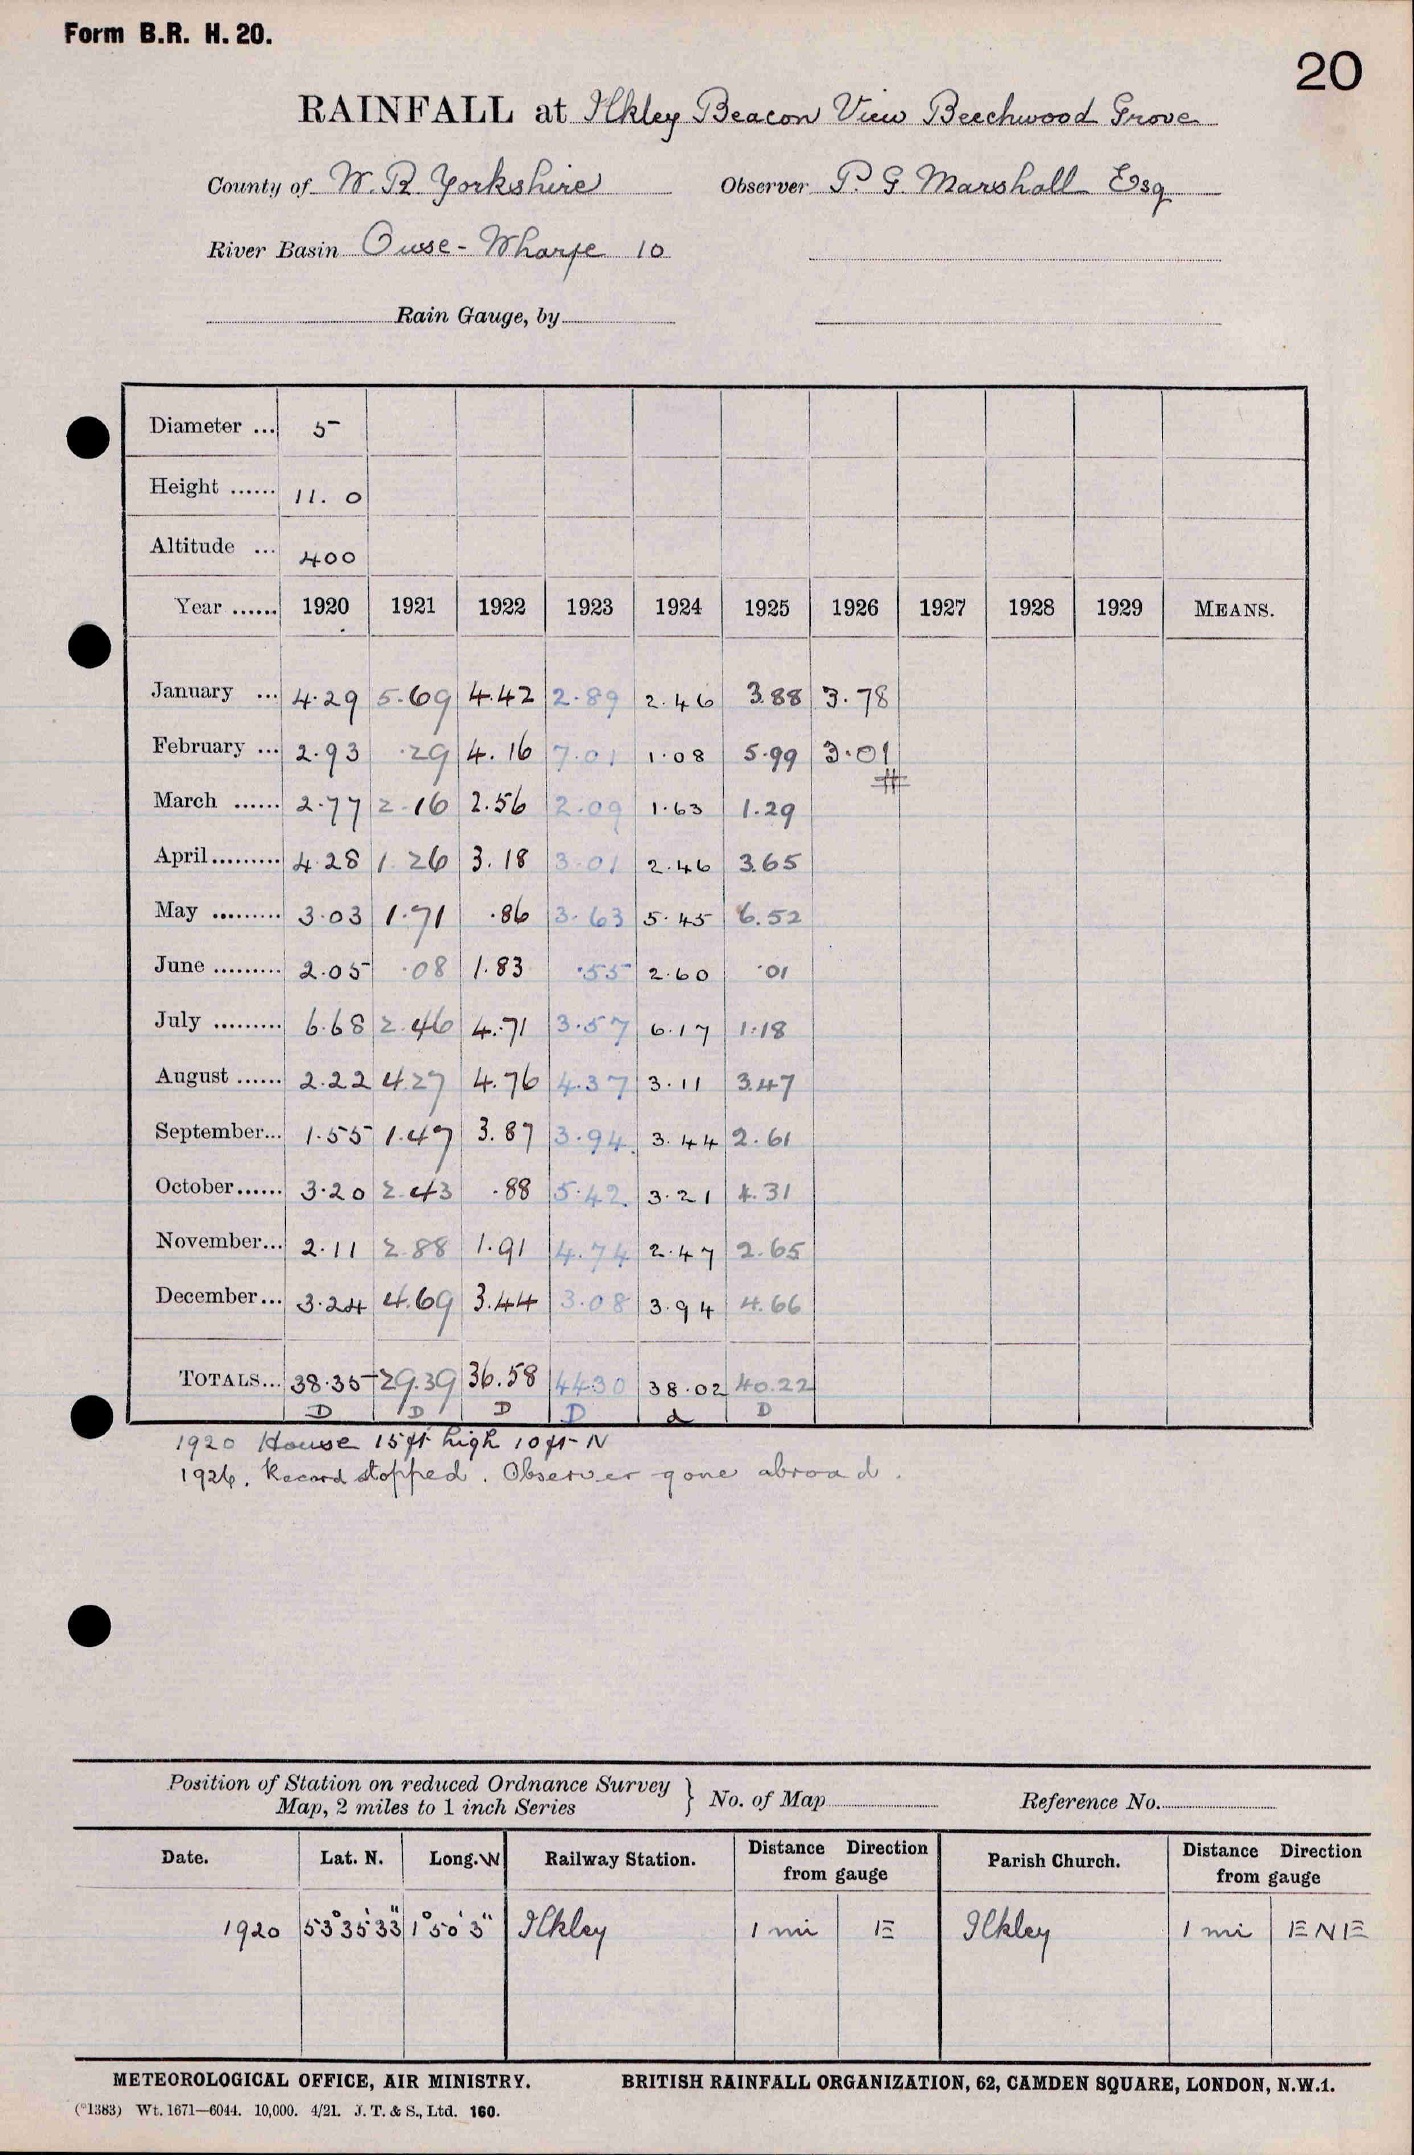 Form B.R. H. 20.
20
RAINFALL at Ilkley Beacon View Beechwood Grove
County of W. R. Yorkshire Observer P. G. Marshall Esq
River Basin Ouse - Wharfe 10
Rain Gauge, by
Diameter ... 5
Height ...... 11. 0
Altitude ... 400
Year ...... 1920 1921 1922 1923 1924 1925 1926 1927 1928 1929 MEANS.
January ... 4.29 5.69 4.42 2.89 2.46 3.88 3.78
February ... 2.93 .29 4.16 7.01 1.08 5.99 3.01
#
March ...... 2.77 2.16 2.56 2.09 1.63 1.29
April......... 4.28 1.26 3.18 3.01 2.46 3.65
May ......... 3.03 1.71 .86 3.63 5.45 6.52
June ......... 2.05 .08 1.83 .55 2.60 .01
July ......... 6.68 2.46 4.71 3.57 6.17 1.18
August ...... 2.22 4.27 4.76 4.37 3.11 3.47
September... 1.55 1.47 3.87 3.94 3.44 2.61
October...... 3.20 2.43 .88 5.42 3.21 4.31
November... 2.11 2.88 1.91 4.74 2.47 2.65
December... 3.24 4.69 3.44 3.08 3.94 4.66
TOTALS... 38.35 29.39 36.58 44.30 38.02 40.22
D D D D d D
1920 House 15ft high 10ft N
1926. Record stopped. Observer gone abroad.
Position of Station on reduced Ordnance Survey
Map, 2 miles to 1 inch Series } No. of Map Reference No.
Date. Lat. N. Long. W Railway Station. Distance Direction from gauge Parish Church. Distance Direction from gauge
1920 53° 35' 33" 1° 50' 3" Ilkley 1 mi E Ilkley 1 mi ENE
METEOROLOGICAL OFFICE, AIR MINISTRY. BRITISH RAINFALL ORGANIZATION, 62, CAMDEN SQUARE, LONDON, N.W.1.
(*1383) Wt. 1671—6044. 10,000. 4/21. J. T. & S., Ltd. 160.